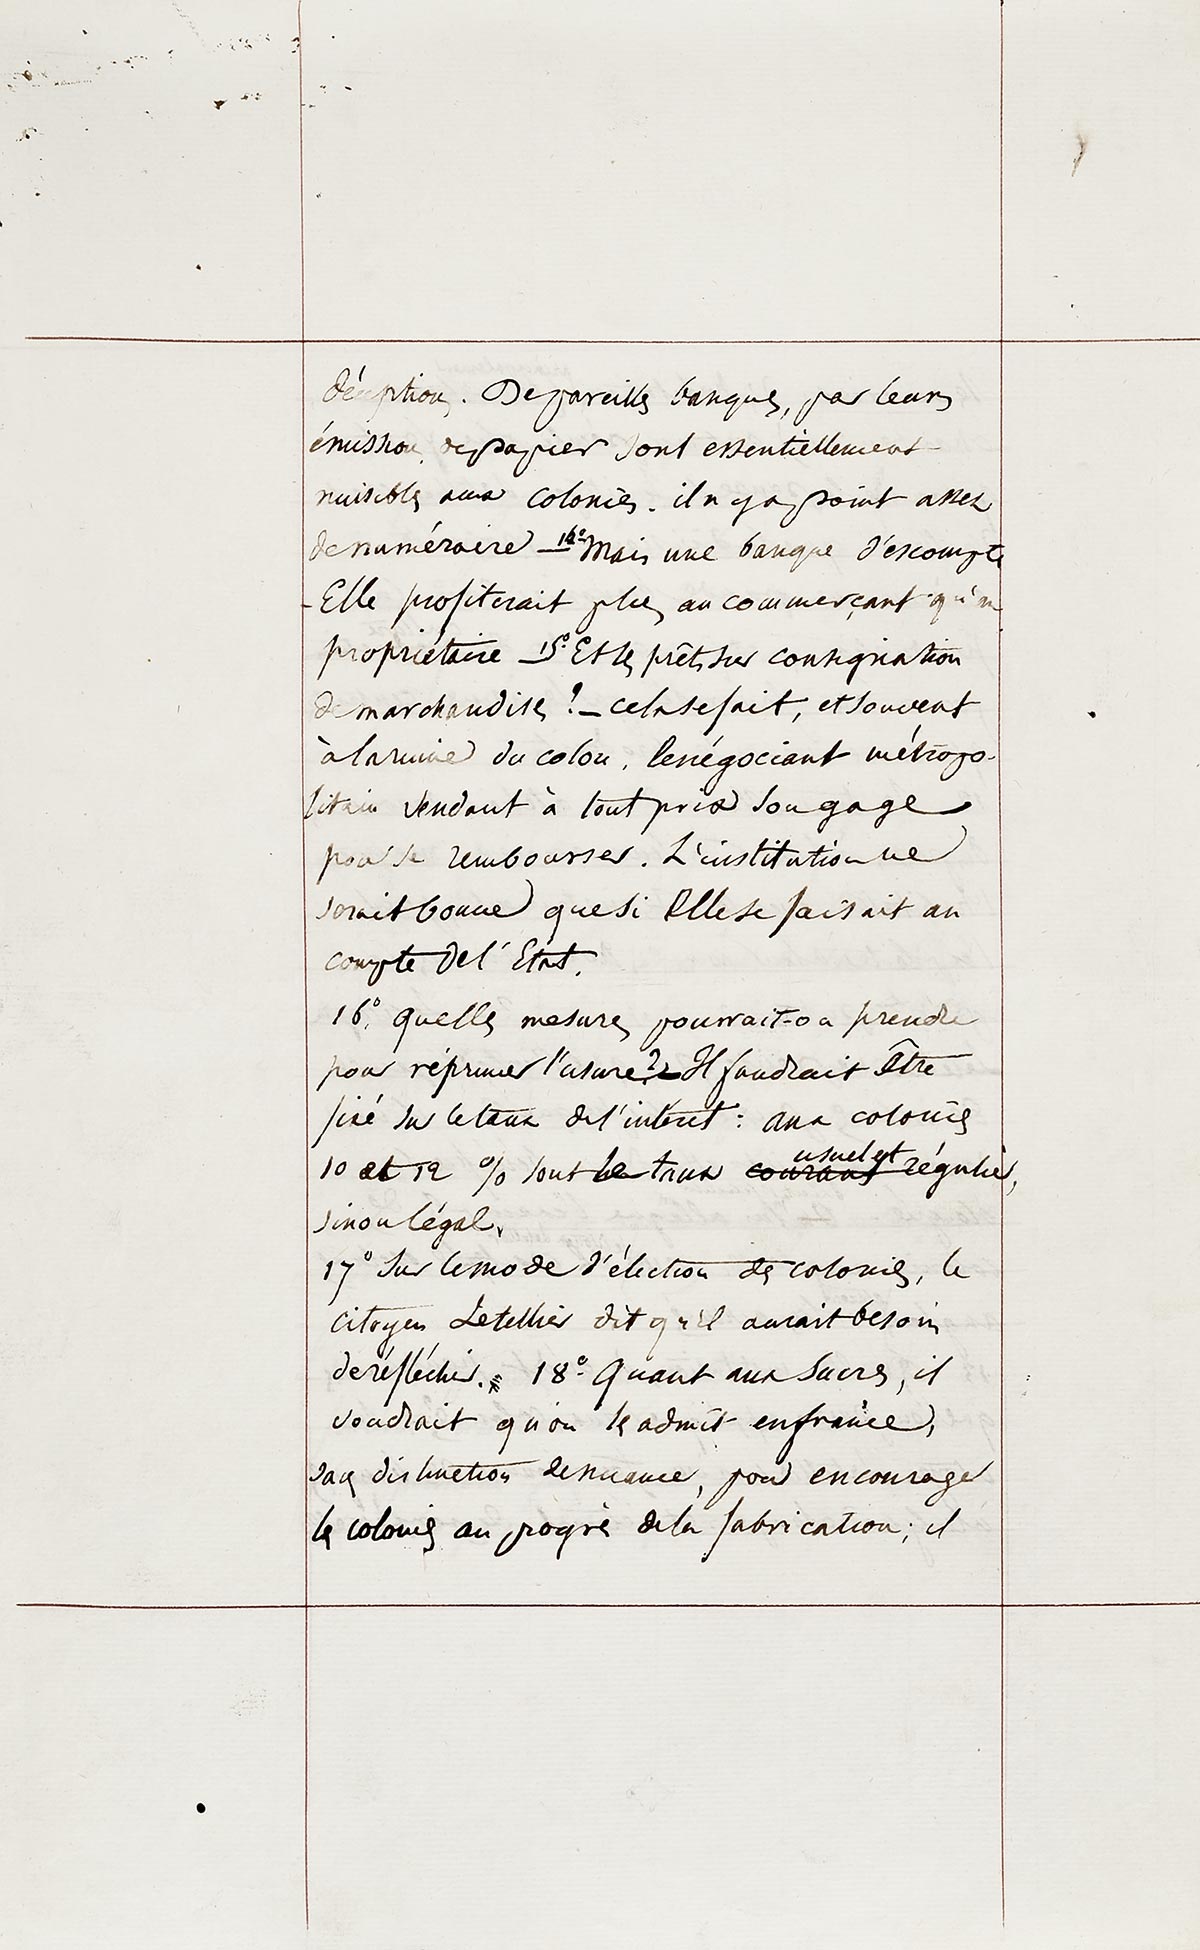 déception. De pareilles banques, par leurs
émissions de papier sont essentiellement
nuisibles aux colonies. il n'y a point assez
de numéraire — 14º Mais une banque d'escompte
- Elle profiterait plus au commerçant qu'au
propriétaire — 15º Et les prêts sur consignation
de marchandises ? — cela se fait, et souvent
à la ruine du colon, le négociant métropo-
litain vendant à tout prix son gage
pour se rembourser. L'institution ne
serait bonne que si Elle se faisait au
compte de l'Etat.
16º. quelles mesures pourrait-on prendre
pour réprimer l'usure ? — Il faudrait être
fixé sur le taux de l'intérêt : aux colonies
10 et 12 % sont le taux courant usuel et régulier,
sinon légal.
17º Sur le mode d'élection des colonies, le
citoyen Letellier dit qu'il aurait besoin
de réfléchir. 18º Quant aux Sucres, il
voudrait qu'on les admît en france,
sans distinction de nuance, pour encourager
les colonies au progrès de la fabrication; il